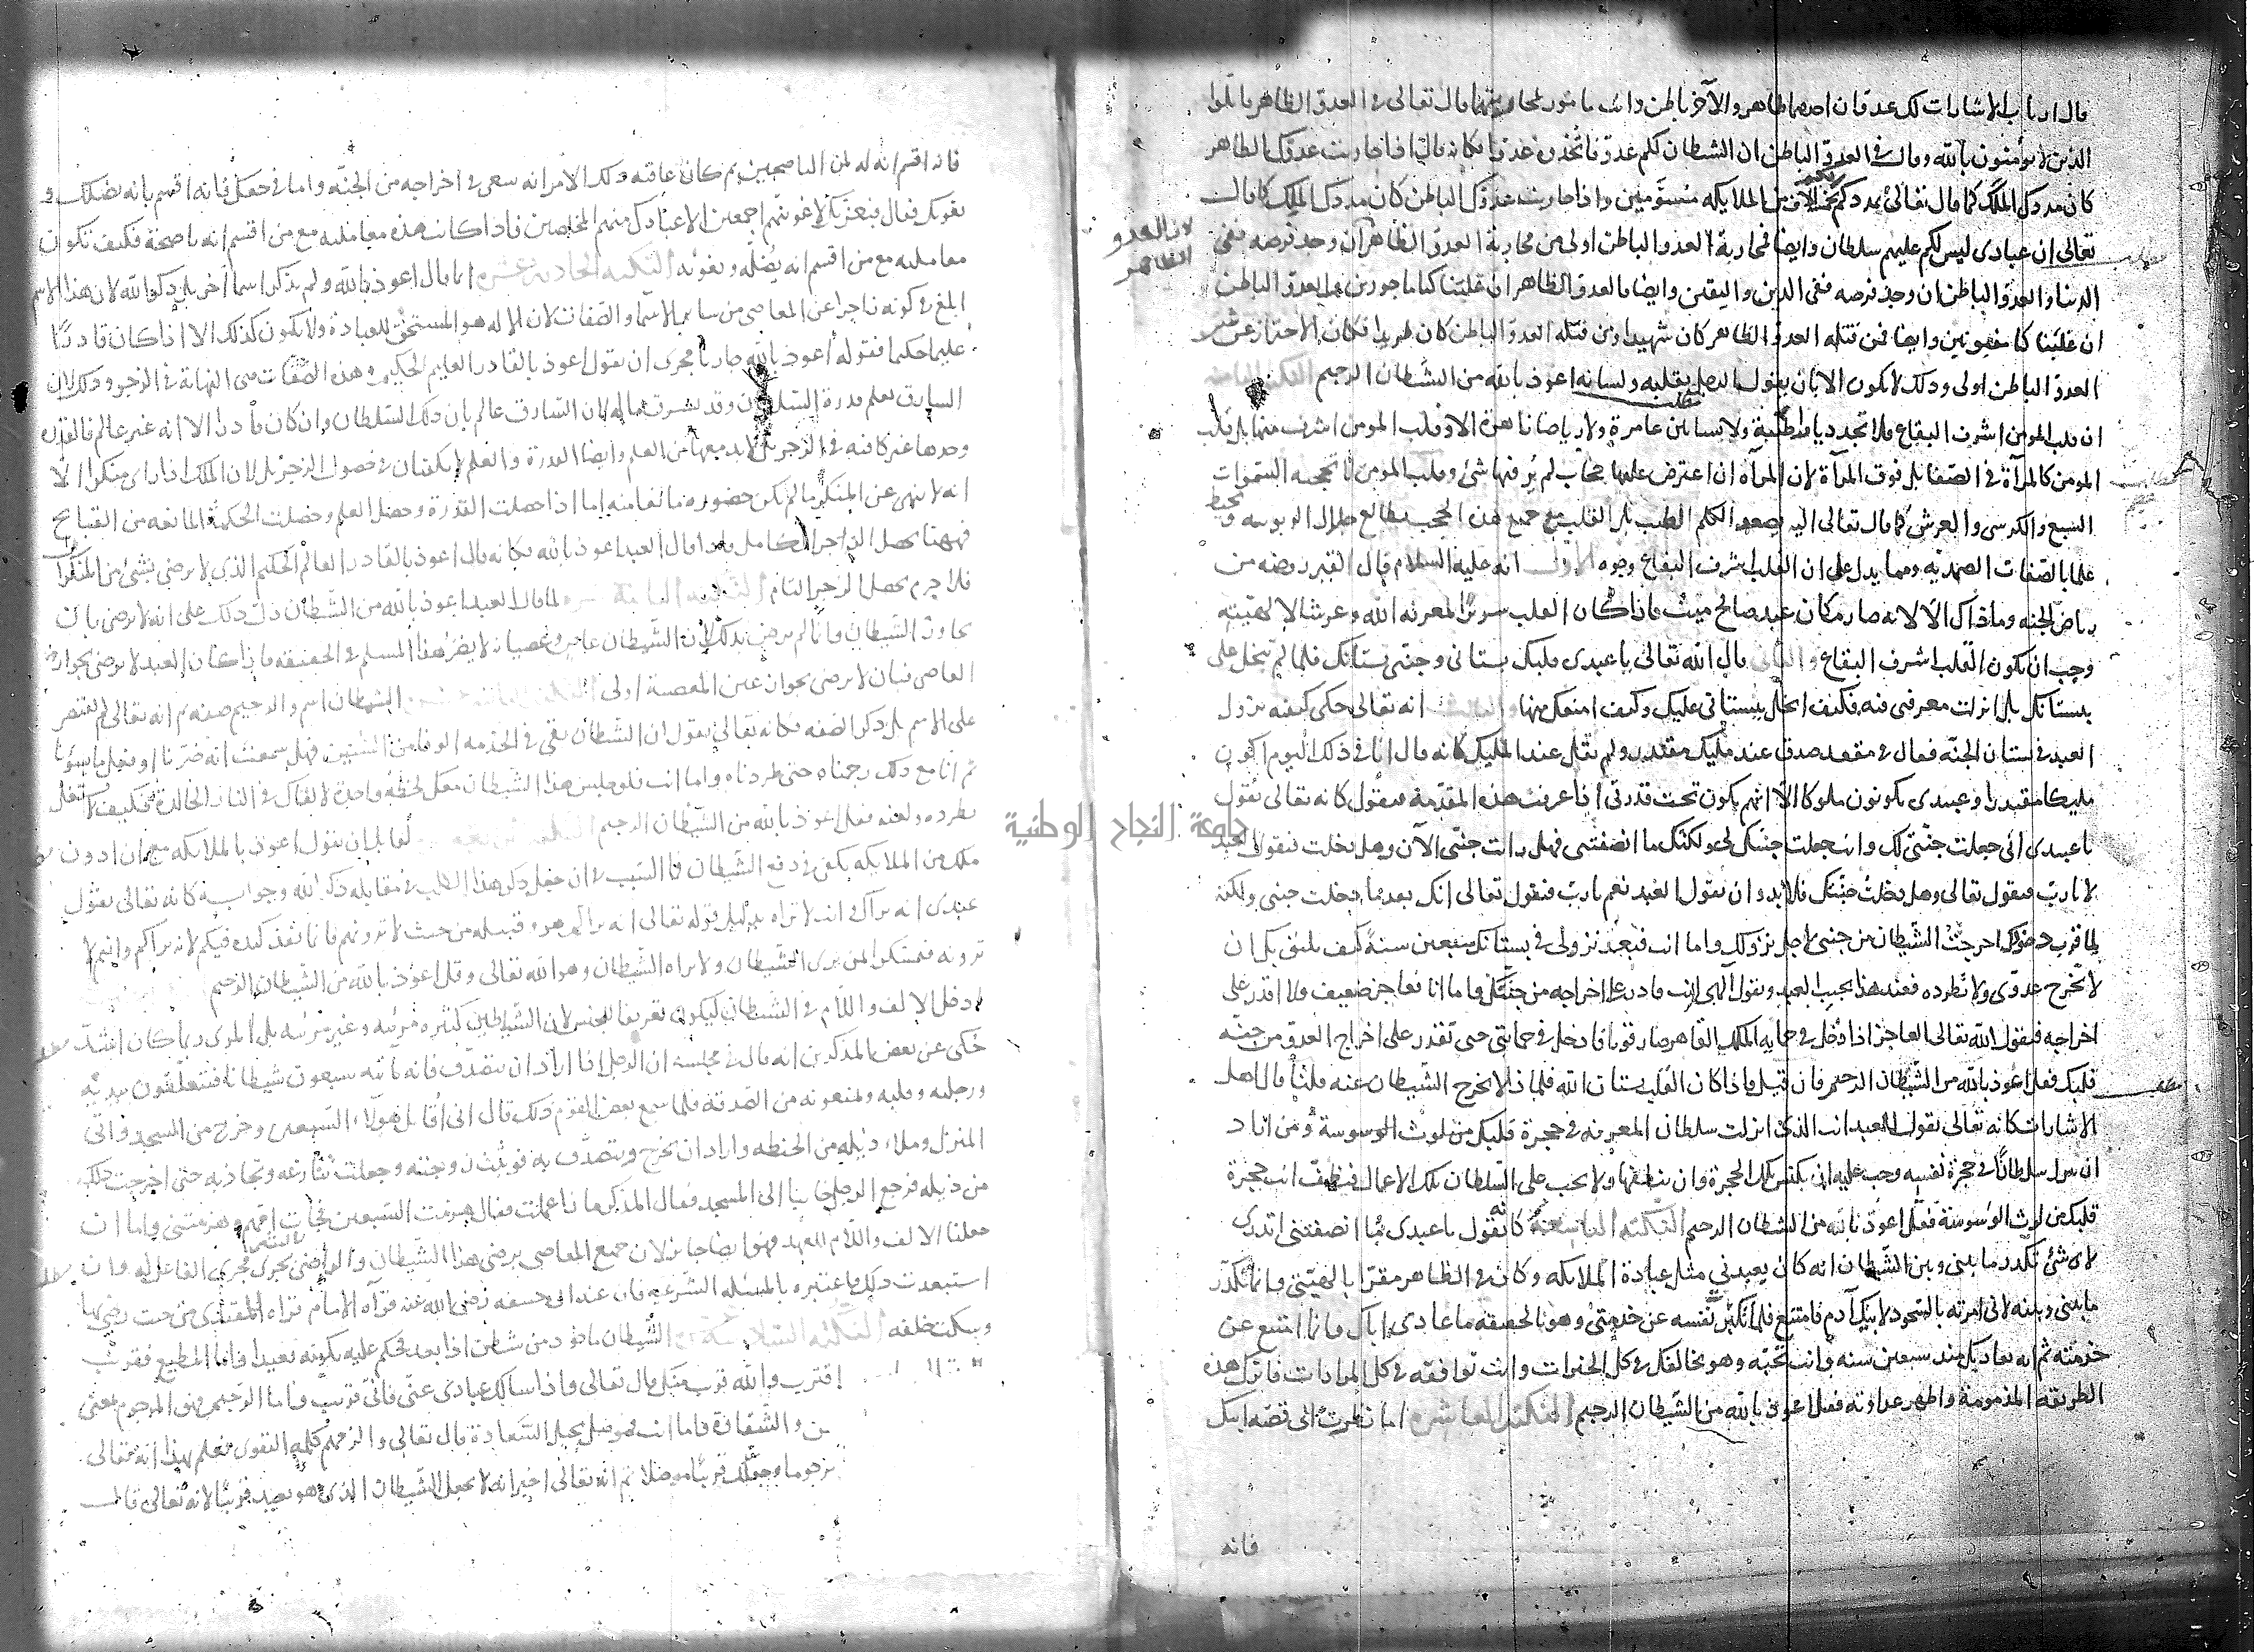 قال ارباب الاشارات لك عدوان احدهما ظاهر والآخر باطن وانت مامور بمحاربتهما قال تعالى في العدو الظاهر قاتلوا
الذين لا يؤمنون بالله وقال في العدو الباطن ان الشيطان لكم عدو فاتخذوه عدوا فكانه قال اذا حاربت عدوك الظاهر
كان مددك الملك كما قال تعالى يمددكم ربكم بخمسة آلاف من الملايكه مسومين واذا حاربت عدوك الباطن كان مددك الملك كما قال
تعالى ان عبادى ليس لك عليهم سلطان وايضا فمحاربة العدو الباطن اولى من محاربة العدو الظاهر ان وجد فرصه ففى
لان العدو الظاهر
الدنيا والعدو الباطن ان وجد فرصه ففى الدين واليقين وايضا فالعدو الظاهر ان غلبنا كنا ماجورين والعدو الباطن
ان غلبنا كنا مفتونين وايضا فمن قتله العدو الظاهر كان شهيدا ومن قتله العدو الباطن كان طريدا فكان الاحتراز عن شر
العدو الباطن اولى وذلك لا يكون الا بان يقول الرجل بقلبه ولسانه اعوذ بالله من الشيطان الرجيم
ان قلب المومن اشرف البقاع فلا تجد ديارا طيبة ولا بساتين عامرة ولا رياضا ناضرة الا وقلب المومن اشرف منها بل قلب
المومن كالمرآة في الصفا بل فوق المرآة لان المرآة ان اعترض عليها حجاب لم ير فيها شئ وقلب المومن لا تحجبه السموات
السبع والكرسى والعرش كما قال تعالى اليه يصعد الكلم الطيب بل القلب مع جميع هذه الحجب يطالع جلال الربوبيه ويحيط
علما بالصفات الصمديه ومما يدل على ان القلب اشرف البقاع وجوه الاول انه عليه السلام قال القبر روضه من
رياض الجنه وما ذاك الا لانه صار مكان عبد صالح ميت فاذا كان القلب سريرا لمعرفه الله وعرشا لإلهيته
وجب ان يكون القلب اشرف البقاع والثانى قال الله تعالى يا عبدى قلبك بستانى وجنتى بستانك فلما لم تبخل على
ببستانك بل انزلت معرفتى فيه فكيف ابخل ببستانى عليك وكيف امنعك منها والثالث انه تعالى حكى كيفيه نزول
العبد في بستان الجنه فقال في مقعد صدق عند مليك مقتدر ولم يقل عند المليك كانه قال انا في ذلك اليوم اكون
مليكا مقتدرا وعبيدى يكونون ملوكا الا انهم يكون تحت قدرتى اذا عرفت هذه المقدمة فنقول كانه تعالى يقول
يا عبدى انى جعلت جنتى لك وانت جعلت جنتك لى ولكنك ما انصفتنى فهل رايت جنتى الآن وهل دخلت فيقول العبد
لا يا رب فيقول تعالى وهل دخلت جنتك فلا بد وان يقول العبد نعم يا رب فيقول تعالى انك بعد ما دخلت جنتى ولكنه
لما قرب دخولك اخرجت الشيطان من جنتى لاجل نزولك واما انت فبعد نزولى في بستانك سبعين سنة كيف يليق بك ان
لا تخرج عدوى ولا تطرده فعند هذا يجيب العبد ويقول الهى انت قادر على اخراجه من جنتك واما انا فعاجز ضعيف ولا اقدر على
اخراجه فيقول الله تعالى العاجز اذا دخل في حمايه الملك القاهر صار قويا فادخل في حمايتى حتى تقدر على اخراج العدو من جنه
قلبك فقل اعوذ بالله من الشيطان الرجيم فان قيل فاذا كان القلب بستان الله فلماذا لا يخرج الشيطان عنه قلنا قال اهل
الاشارات كانه تعالى يقول للعبد انت الذى انزلت سلطان المعرفه في حجرة قلبك من لوث الوسوسة ومن اراد
ان ينزل سلطانا في حجرة نفسه وجب عليه ان يكنس تلك الحجرة وان ينظفها ولا يجب على السلطان تلك الاعمال فنظف انت حجرة
قلبك من لوث الوسوسة فقل اعوذ بالله من الشيطان الرجيم النكتة التاسعة كانه يقول يا عبدى ما انصفتنى اتدرى
لاى شئ تكدر ما بينى وبين الشيطان انه كان يعبدنى مثل عبادة الملايكه وكان في الظاهر مقرا بالهيتى وانما تكدر
ما بينى وبينه لانى امرته بالسجود لابيك آدم فامتنع فلما تكبر نفيته عن خدمتى وهو في الحقيقه ما عادى اباك وانما امتنع عن
خدمته ثم انه يعاديك منذ سبعين سنه وانت تحبه وهو يخالفك في كل الخيرات وانت توافقه في كل المرادات فاترك هذه
الطريقه المذمومة واظهر عداوته فقل اعوذ بالله من الشيطان الرجيم النكتة العاشرة اما نظرت الى قصه ابيك
فانه
فانه اقسم انه له لمن الناصحين ثم كان عاقبه ذلك الامر انه سعى في اخراجه من الجنه واما في حقك فانه اقسم بانه يضلك و
يغويك فقال فبعزتك لاغوينهم اجمعين الا عبادك منهم المخلصين فاذا كانت هذه معاملته مع من اقسم انه ناصحه فكيف تكون
معاملته مع من اقسم انه يضله ويغويه النكتة الحادية عشرة انما قال اعوذ بالله ولم يذكر اسما آخر بل ذكر الله لان هذا الاسم
ابلغ في كونه زاجرا عن المعاصى من سائر الاسما والصفات لان الاله هو المستحق للعبادة ولا يكون كذلك الا اذا كان قادرا
عليما حكيما فقوله اعوذ بالله جار مجرى ان يقول اعوذ بالقادر العليم الحكيم وهذه الصفات هى النهاية في الزجر وذلك لان
السارق يعلم قدرة السلطان وقد يسرق ماله لان السارق عالم بان ذلك السلطان وان كان قادرا الا انه غير عالم فالقدرة
وحدها غير كافيه في الزجر بل لا بد معها من العلم وايضا القدرة والعلم لا يكفيان في حصول الزجر لان الملك اذا راى منكرا الا
انه لا ينهى عن المنكر لم يكن حضوره مانعا منه اما اذا حصلت القدرة وحصل العلم وحصلت الحكمة المانعه من القبايح
فههنا يحصل الزاجر الكامل فاذا قال العبد اعوذ بالله فكانه قال اعوذ بالقادر العالم الحكيم الذى لا يرضى بشئ من المنكرات
فلا جرم يحصل الزجر التام النكتة الثانية عشرة لما قال العبد اعوذ بالله من الشيطان دل ذلك على انه لا يرضى بان
يجاور الشيطان وانما لم يرض بذلك لان الشيطان عاص وعصيانه لا يضر هذا المسلم في الحقيقه فاذا كان العبد لا يرضى بجوار
العاصى فبان لا يرضى بجوار عين المعصية اولى الشيطان اسم والرجيم صفه ثم انه تعالى لم يقتصر
على الاسم بل ذكر الصفه فكانه تعالى يقول ان الشيطان بقى في الخدمه الوفا من السنين فهل سمعت انه ضرنا او فعل ما يسوؤنا
ثم انا مع ذلك رجمناه حتى طردناه واما انت فلو جلس هذا الشيطان معك لحظة واحدة لالقاك في النار الخالدة فكيف لا تشتغل
بطرده ولعنه فقل اعوذ بالله من الشيطان الرجيم لقايل ان يقول اعوذ بالملايكه مع ان ادون
ملك من الملايكه يكفى في دفع الشيطان فما السبب في ان جعل ذكر هذا الكلب في مقابله ذكر الله وجوابه كانه تعالى يقول
عبدى انه يراك وانت لا تراه بدليل قوله تعالى انه يراكم هو وقبيله من حيث لا ترونهم فانما نفذ كيده فيكم لانه يراكم وانتم لا
ترونه فتمسكوا بمن يرى الشيطان ولا يراه الشيطان وهو الله تعالى وقل اعوذ بالله من الشيطان الرجيم
ادخل الالف واللام في الشيطان ليكون تعريفا للجنس لان الشياطين كثيره مرئيه وغير مرئيه بل المرئى ربما كان اشد
حكى عن بعض المذكرين انه قال في مجلسه ان الرجل اذا اراد ان يتصدق فانه ياتيه سبعون شيطانا فيتعلقون بيديه
ورجليه وقلبه ويمنعونه من الصدقه فلما سمع بعض القوم ذلك قال انى اقاتل هولاء السبعين وخرج من المسجد واتى
المنزل وملاء ذيله من الحنطه واراد ان يخرج ويتصدق به فوثبت زوجته وجعلت تنازعه وتحاربه حتى اخرجت ذلك
من ذيله فرجع الرجل خائبا الى المسجد فقال المذكر ماذا عملت فقال هزمت السبعين فجاءت امهم وهزمتنى واما ان
جعلنا الالف واللام للعهد فهو ايضا جايز لان جميع المعاصى برضى هذا الشيطان والراضى يجرى مجرى الفاعل له وان
استبعدت ذلك فاعتبره بالمسئله الشرعيه فان عند ابى حنيفه رضى الله عنه قرآه الامام قراه المقتدى من حيث رضى بها
وسكت خلفه النكتة السادسة عشرة الشيطان ماخوذ من شطن اذا بعد فحكم عليه بكونه بعيدا واما المطيع فقريب
اقترب والله قريب منك قال تعالى واذا سالك عبادى عنى فانى قريب واما الرجيم فهو المرجوم بمعنى
والشقاوة واما انت فموصل بحبل السعادة قال تعالى والزمهم كلمه التقوى فعلم بهذا انه تعالى
مرجوما وجعلك قريبا موصلا ثم انه تعالى اخبر انه لا يجعل الشيطان الذى هو بعيد قريبا لانه تعالى قال
جامعة النجاح الوطنية